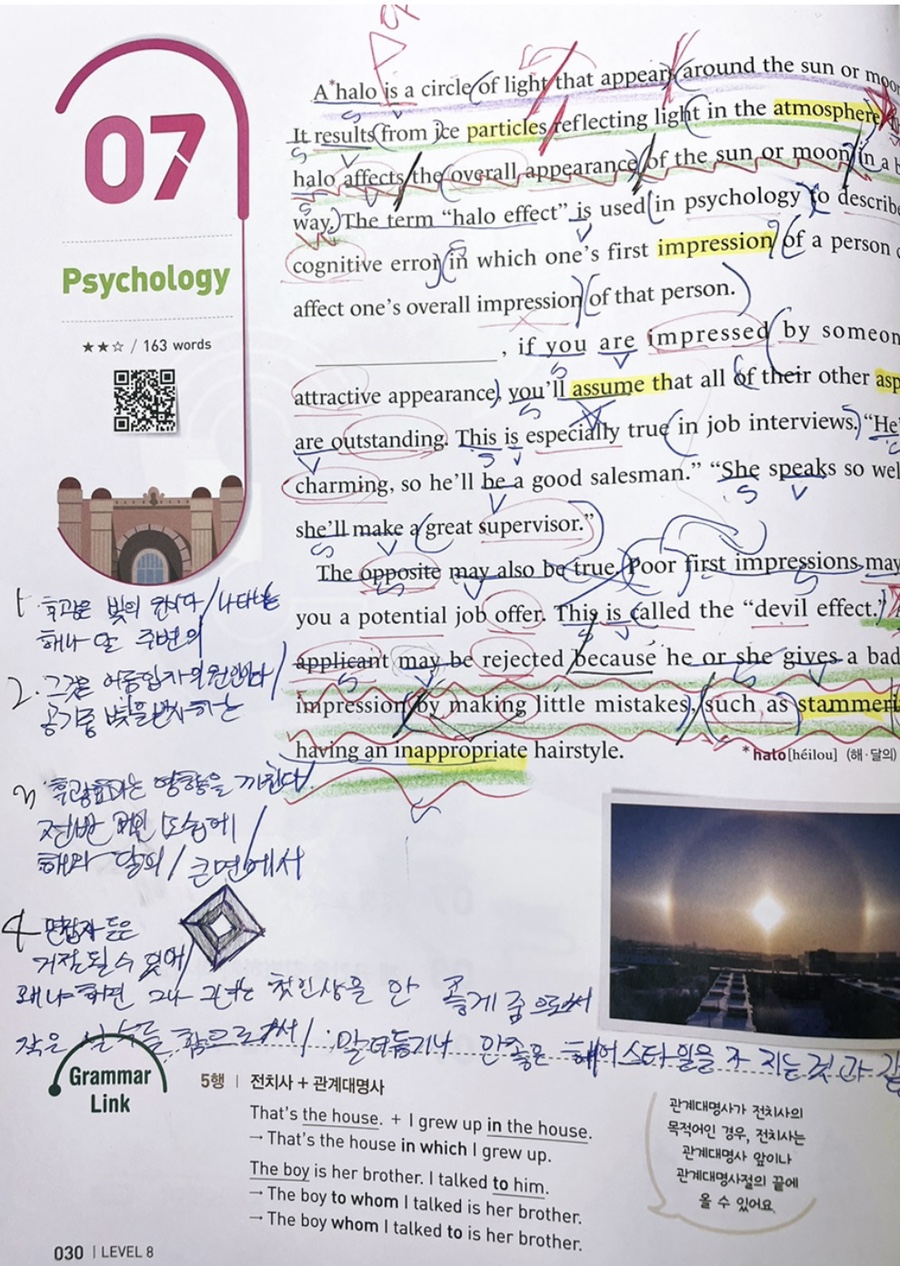 07
Psychology
★★☆ / 163 words
A*halo is a circle of light that appear around the sun or moo
It results from ice particles reflecting light in the atmosphere
halo affects the overall appearance of the sun or moon in a b
way. The term “halo effect” is used in psychology to describe
cognitive error in which one’s first impression of a person c
affect one’s overall impression of that person.
____________________, if you are impressed by someon
attractive appearance, you’ll assume that all of their other asp
are outstanding. This is especially true in job interviews. “He’
charming, so he’ll be a good salesman.” “She speaks so wel
she’ll make a great supervisor.”
The opposite may also be true. Poor first impressions may
you a potential job offer. This is called the “devil effect.”
applicant may be rejected because he or she gives a bad
impression by making little mistakes, such as stammeri
having an inappropriate hairstyle.
*halo[héilou] (해·달의)
1. 후광은 빛의 원이다 / 나타나는
해나 달 주변의
2. 그것은
공기중 빛을 반사하는
3 후광효과는 영향을 끼친다/
전반 적인 모습에 /
해와 달의 / 큰면에서
4 면접자 들은
거절 될수 있어/
왜냐하면 그나 그녀는 첫인상을 안 좋게 줌으로써
작은 실수들 함으로써 / 말더듬기나 안좋은 헤어스타일을 가 지는것 과 같
Grammar
Link
5행 | 전치사 + 관계대명사
That’s the house. + I grew up in the house.
→ That’s the house in which I grew up.
The boy is her brother. I talked to him.
→ The boy to whom I talked is her brother.
→ The boy whom I talked to is her brother.
관계대명사가 전치사의
목적어인 경우, 전치사는
관계대명사 앞이나
관계대명사절의 끝에
올 수 있어요.
030 | LEVEL 8